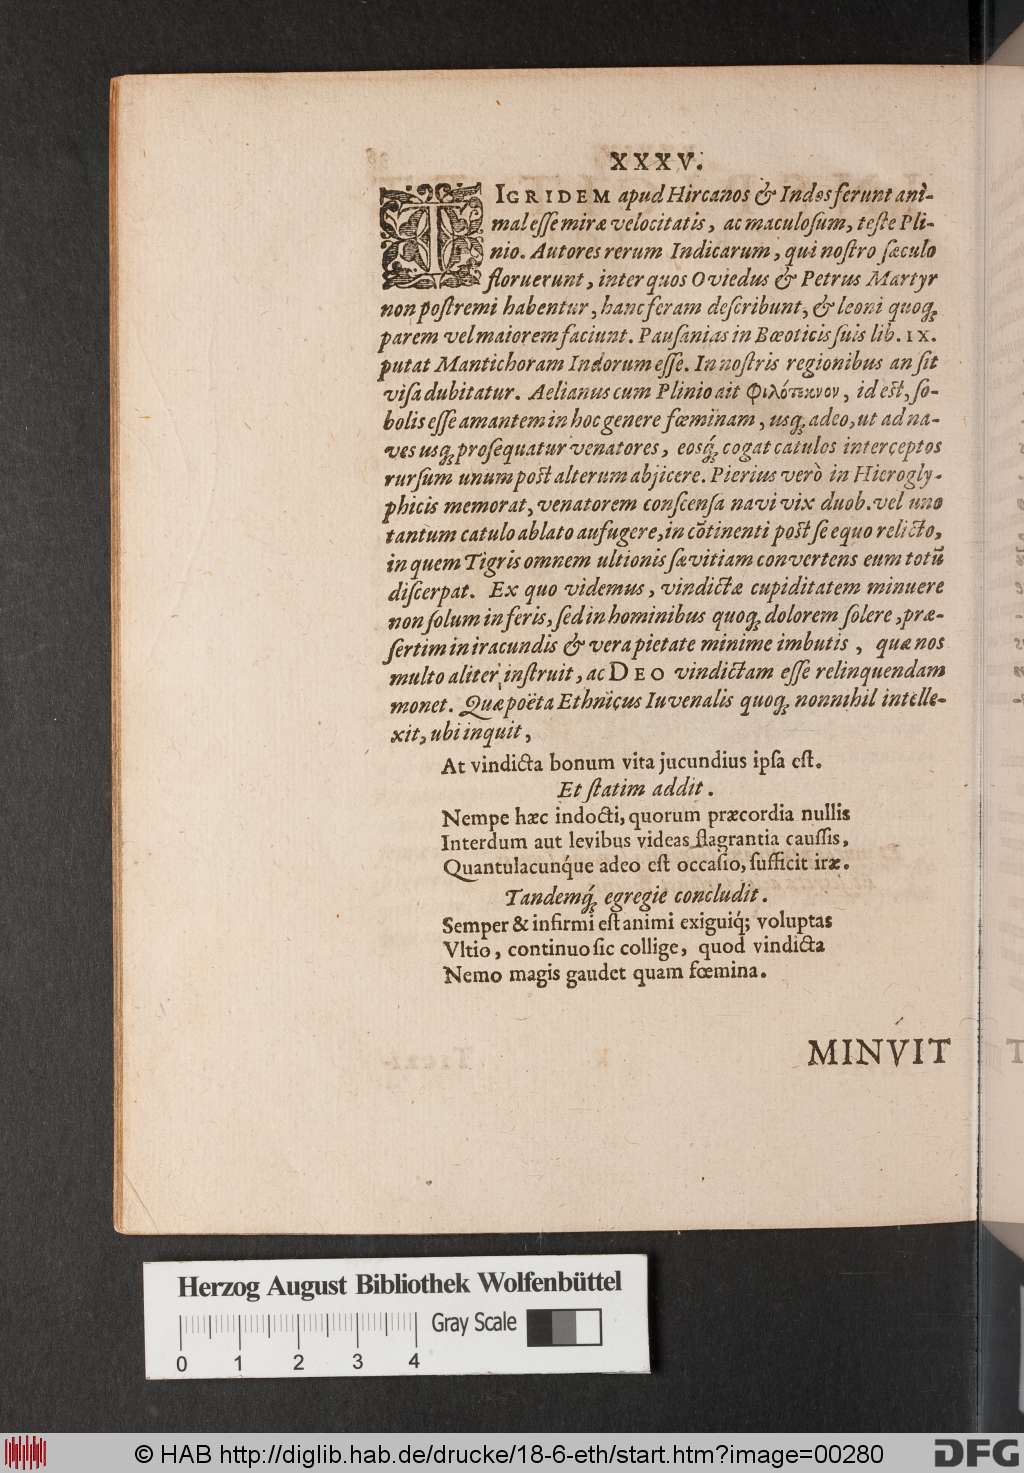 XXXV.
TIGRIDEM apud Hircanos & Indos ferunt ani-
mal esse miræ velocitatis, ac maculosum, teste Pli-
nio. Autores rerum Indicarum, qui nostro sæculo
floruerunt, inter quos Oviedus & Petrus Martyr
non postremi habentur, hanc feram describunt, & leoni quoq;
parem vel maiorem faciunt. Pausanias in Bœoticis suis lib. IX.
putat Mantichoram Indorum esse. In nostris regionibus an sit
visa dubitatur. Aelianus cum Plinio ait Φιλότεκνον, id est, so-
bolis esse amantem in hoc genere fœminam, usq; adeo, ut ad na-
ves usq; prosequatur venatores, eosq́; cogat catulos interceptos
rursum unum post alterum abjicere. Pierius verò in Hierogly-
phicis memorat, venatorem conscensa navi vix duob. vel uno
tantum catulo ablato aufugere, in cõtinenti post se equo relicto,
in quem Tigris omnem ultionis sævitiam convertens eum totũ
discerpat. Ex quo videmus, vindictæ cupiditatem minuere
non solum in feris, sed in hominibus quoq; dolorem solere, præ-
sertim in iracundis & vera pietate minime imbutis, quæ nos
multo aliter instruit, ac DEO vindictam esse relinquendam
monet. Quæ poëta Ethnicus Iuvenalis quoq; nonnihil intelle-
xit, ubi inquit,
At vindicta bonum vita jucundius ipsa est.
Et statim addit.
Nempe hæc indocti, quorum præcordia nullis
Interdum aut levibus videas flagrantia caussis,
Quantulacunq́ue adeo est occasio, sufficit iræ.
Tandemq́; egregie concludit.
Semper & infirmi est animi exiguiq́; voluptas
Vltio, continuo sic collige, quod vindicta
Nemo magis gaudet quam fœmina.
MINVIT
Herzog August Bibliothek Wolfenbüttel
Gray Scale
0 1 2 3 4
© HAB http://diglib.hab.de/drucke/18-6-eth/start.htm?image=00280
DFG